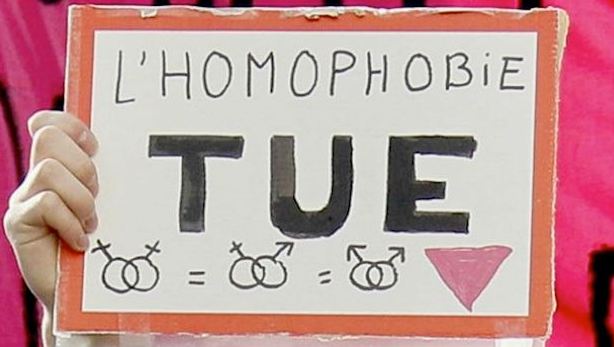 L'HOMOPHOBiE
TUE
⚢ = ⚤ = ⚣